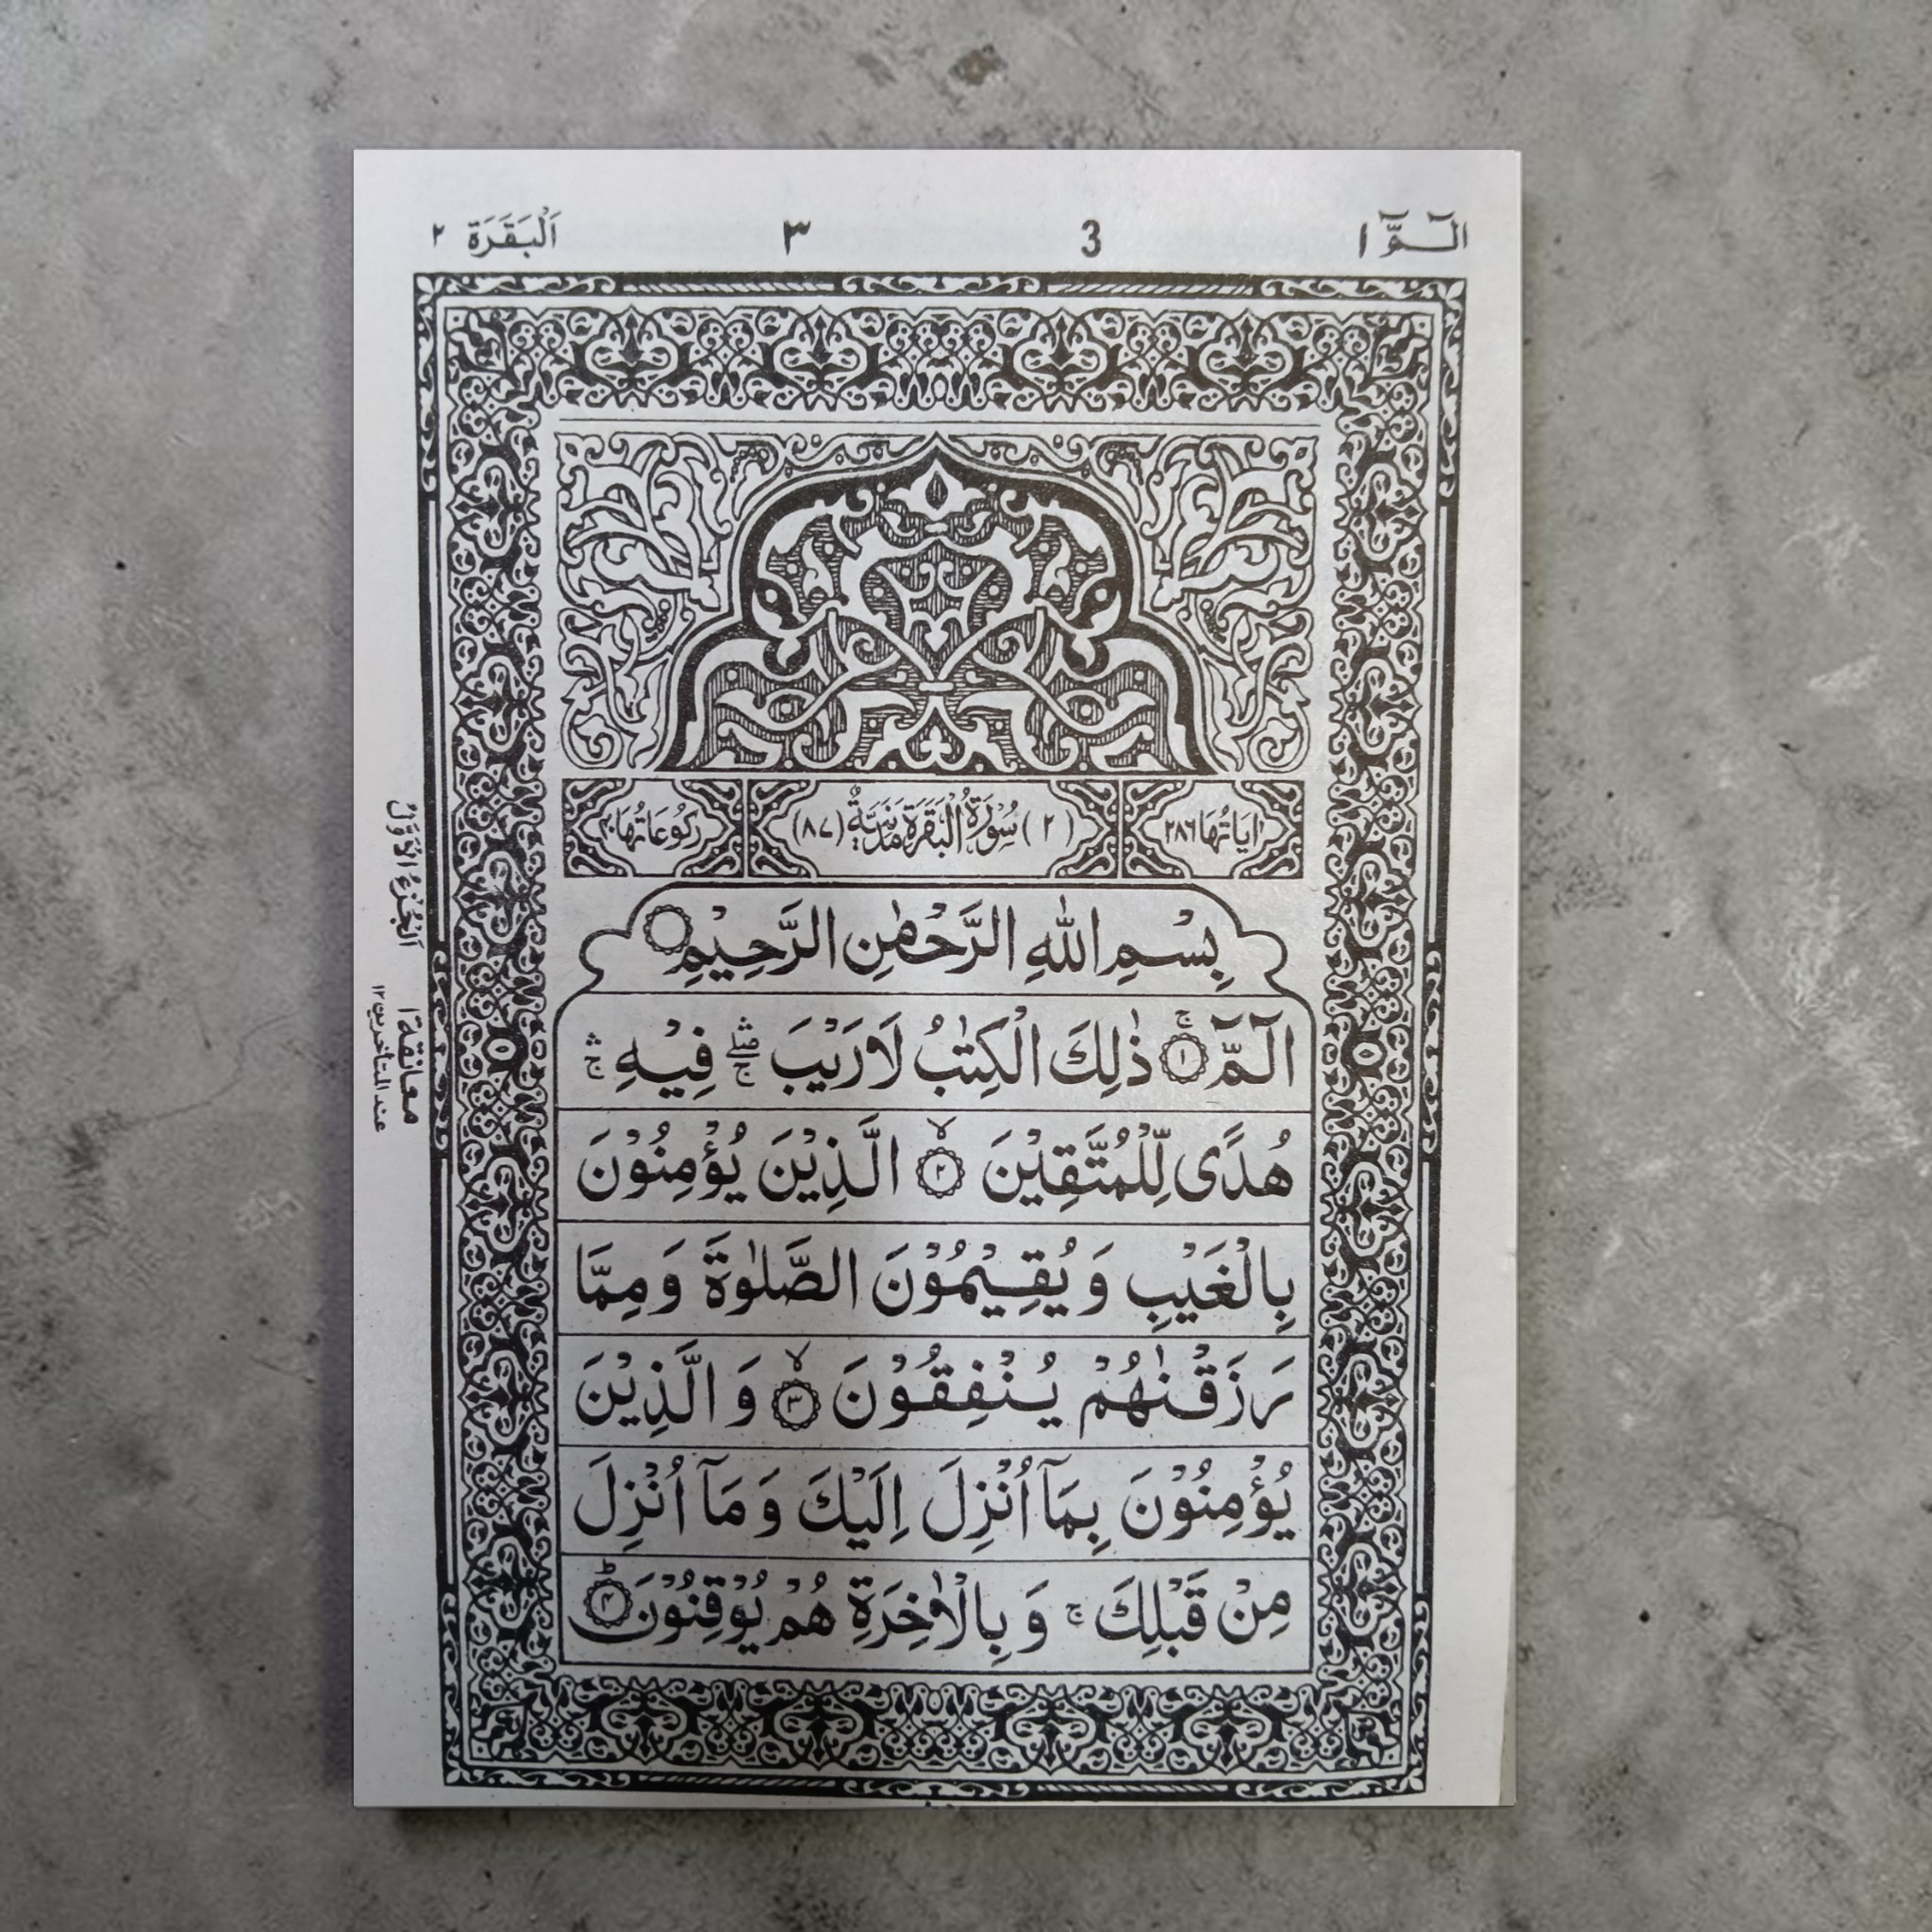 الٓـمّٓ ١
3
٣
اَلْبَقَرَة ٢
اٰيَاتُهَا ٢٨٦
(٢) سُوْرَةُ الْبَقَرَةِ مَدَنِيَّةٌ (٨٧)
رُكُوْعَاتُهَا ٤٠
بِسْمِ اللّٰهِ الرَّحْمٰنِ الرَّحِيْمِ
الٓمّٓ ۚ﴿١﴾ ذٰلِكَ الْكِتٰبُ لَا رَيْبَ ۛۖۚ فِيْهِ ۛۚ
هُدًى لِّلْمُتَّقِيْنَ ۙ﴿٢﴾ الَّذِيْنَ يُؤْمِنُوْنَ
بِالْغَيْبِ وَ يُقِيْمُوْنَ الصَّلٰوةَ وَ مِمَّا
رَزَقْنٰهُمْ يُنْفِقُوْنَ ۙ﴿٣﴾ وَ الَّذِيْنَ
يُؤْمِنُوْنَ بِمَاۤ اُنْزِلَ اِلَيْكَ وَ مَاۤ اُنْزِلَ
مِنْ قَبْلِكَ ۚ وَ بِالْاٰخِرَةِ هُمْ يُوْقِنُوْنَ ؕ﴿٤﴾
اَلْجُزْءُ الْاَوَّلُ
معانقة ١
عند المتأخرين ١٢